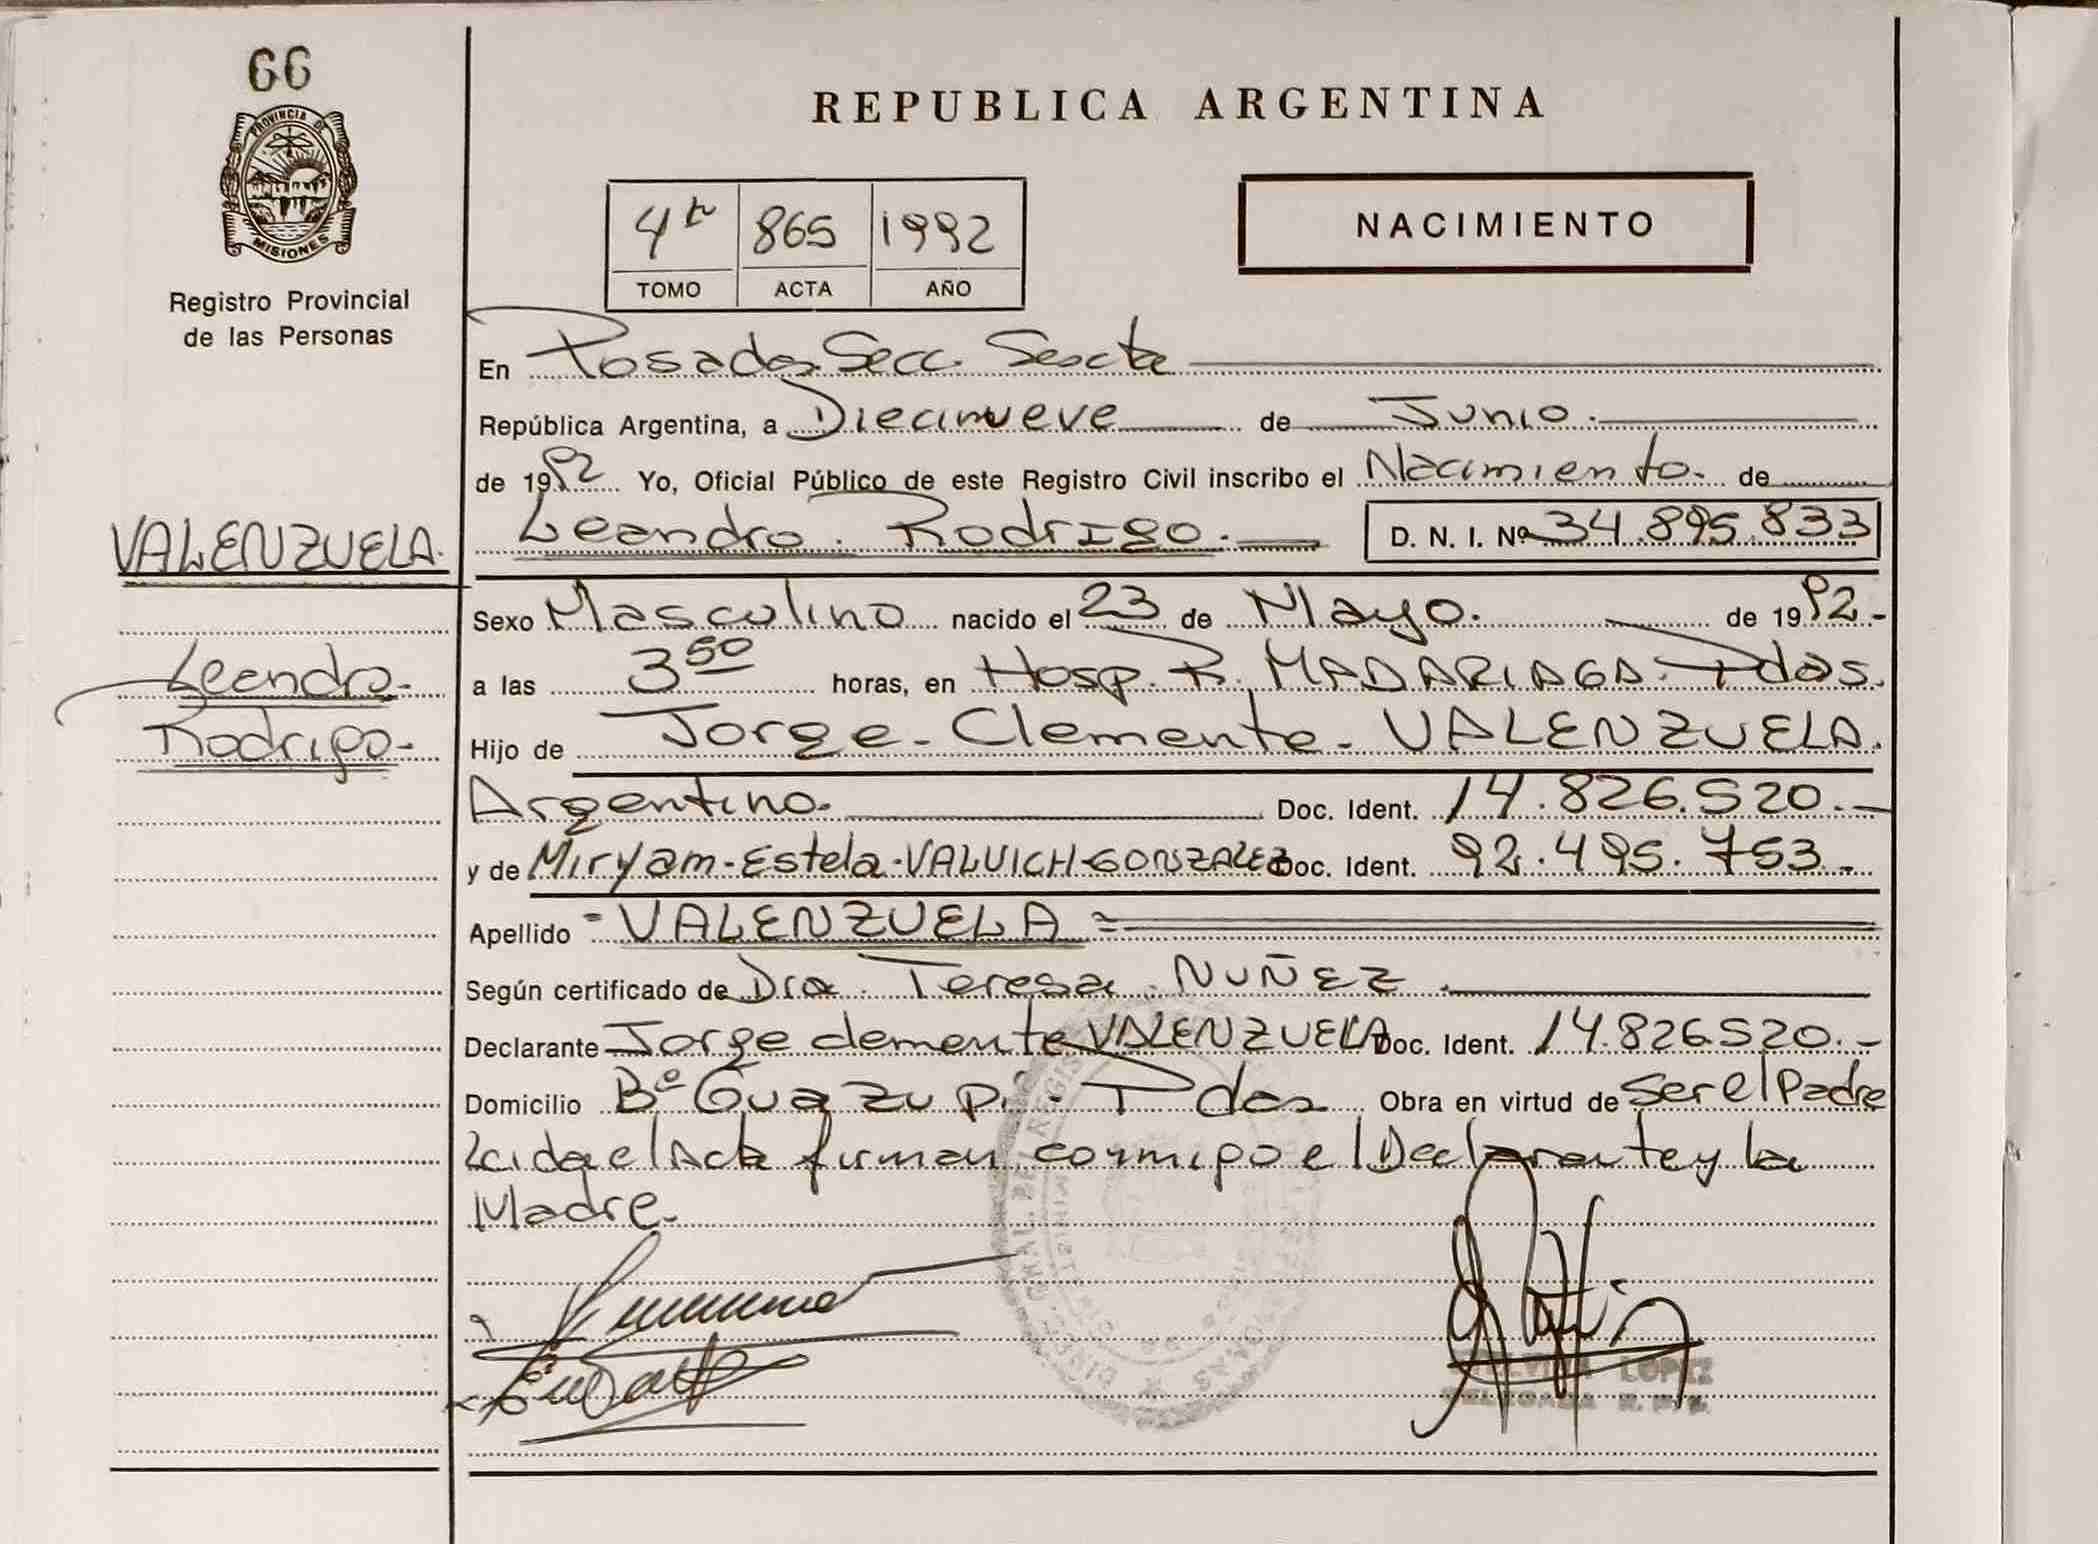 66
PROVINCIA DE
MISIONES
Registro Provincial
de las Personas
REPUBLICA ARGENTINA
4to 865 1992
TOMO ACTA AÑO
NACIMIENTO
En Posadas Secc. Sexta
República Argentina, a Diecinueve de Junio.
de 1992 Yo, Oficial Público de este Registro Civil inscribo el Nacimiento. de
Leandro. Rodrigo. D. N. I. Nº 34.895.833
VALENZUELA.
Leandro.
Rodrigo-
Sexo Masculino nacido el 23 de Mayo. de 1992.-
a las 3 50 horas, en Hosp. R. MADARIAGA. Pdas.
Hijo de Jorge-Clemente-VALENZUELA.
Argentino. Doc. Ident. 14.826.520.-
y de Miryam-Estela-VALUICH-GONZALEZ Doc. Ident. 92.495.753.-
Apellido =VALENZUELA=
Según certificado de Dra. Teresa. NUÑEZ.
Declarante Jorge clemente VALENZUELA Doc. Ident. 14.826520.-
Domicilio Bº Guazupi. Pdas Obra en virtud de ser el Padre
Leida el Acta firman conmigo el Declarante y la
Madre.
LOPEZ
DELEGADA